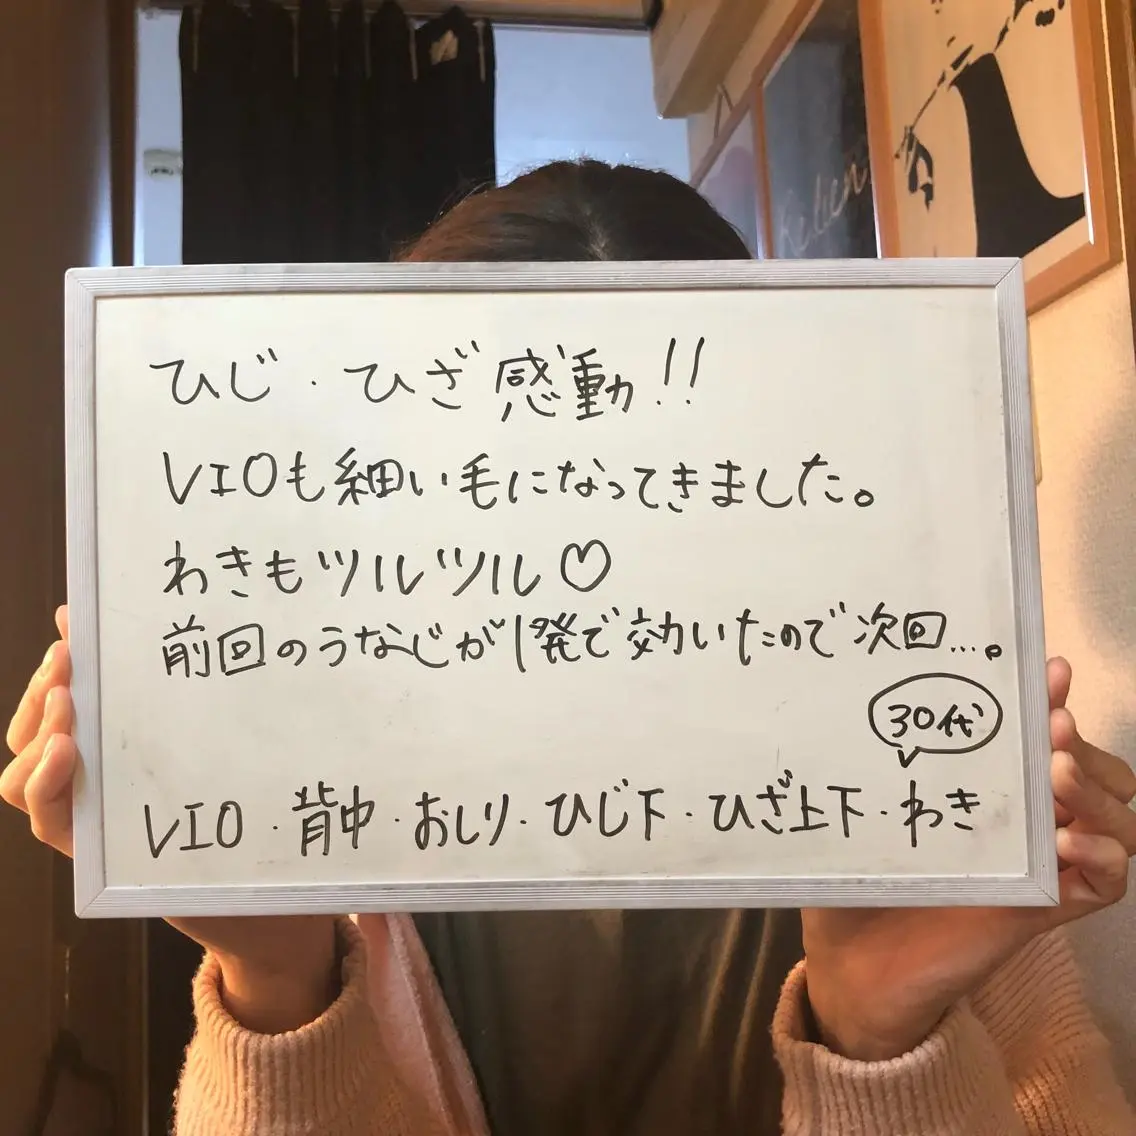 ひじ・ひざ感動!!
VIOも細い毛になってきました。
わきもツルツル♡
前回のうなじが1発で効いたので次回…。
30代
VIO・背中・おしり・ひじ下・ひざ上下・わき